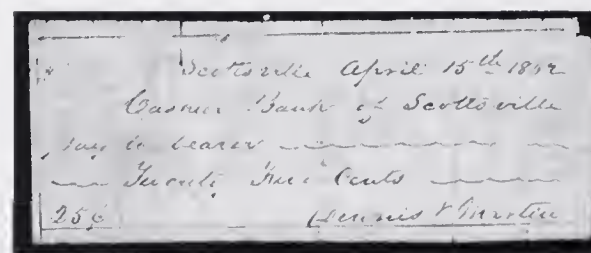 Scottsville April 15th 1862
Bank of Scottsville
pay to bearer
Twenty Five Cents
25¢ Dennis & Martin